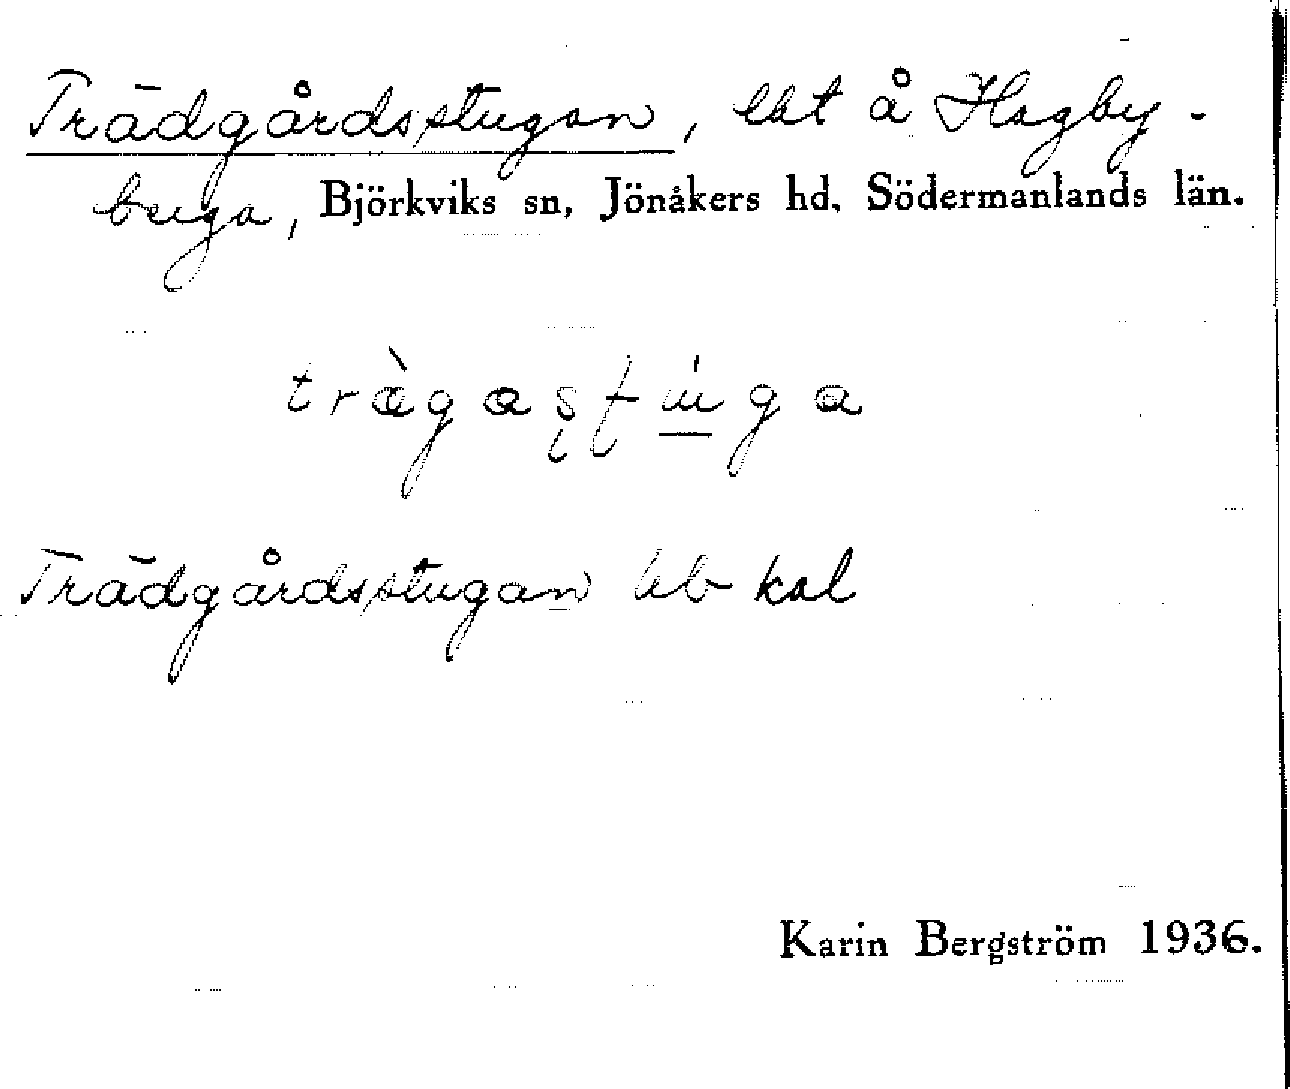 Trädgårdsstugan, lht å Hagby-
berga, Björkviks sn, Jönåkers hd, Södermanlands län.
Trädgårdsstugan hb kal
Karin Bergström 1936.